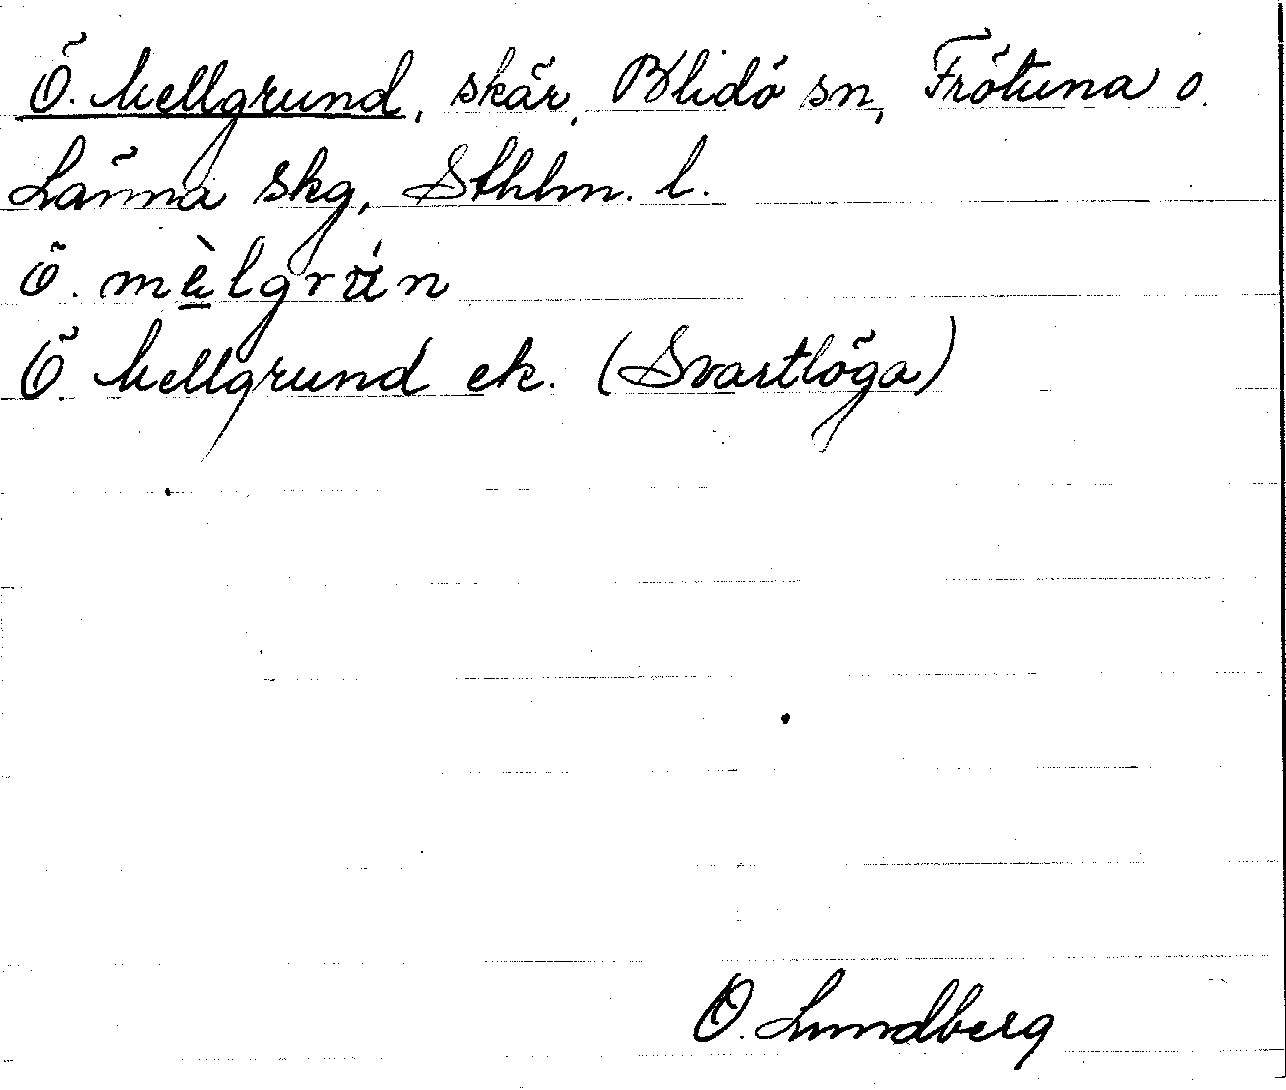 Ö. Mellgrund, skär, Blidö sn, Frötuna o.
Länna skg, Sthlm. l.
Ö. mèlgrún
Ö. Mellgrund ek. (Svartlöga)
O. Lundberg